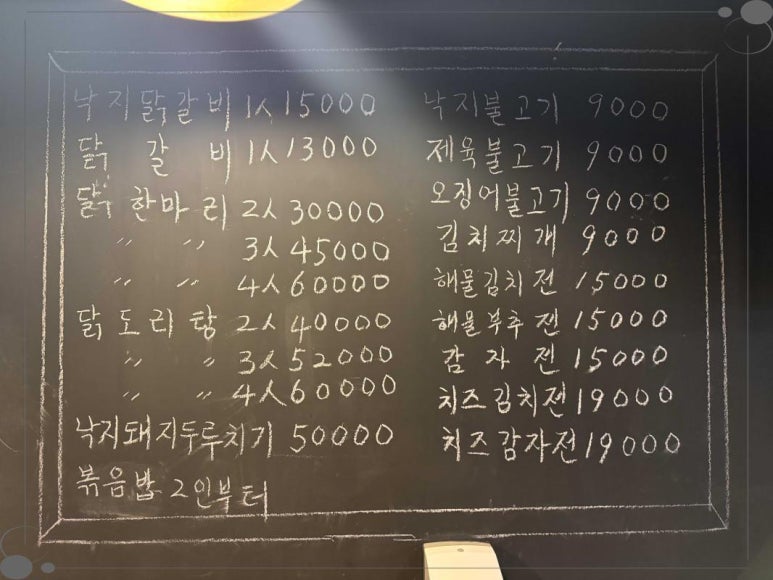 낙지닭갈비 1人 15000
닭갈비 1人 13000
닭한마리 2人 30000
〃 〃 3人 45000
〃 〃 4人 60000
닭도리탕 2人 40000
〃 〃 3人 52000
〃 〃 4人 60000
낙지돼지두루치기 50000
볶음밥 2인부터
낙지불고기 9000
제육불고기 9000
오징어불고기 9000
김치찌개 9000
해물김치전 15000
해물부추전 15000
감자전 15000
치즈김치전 19000
치즈감자전 19000